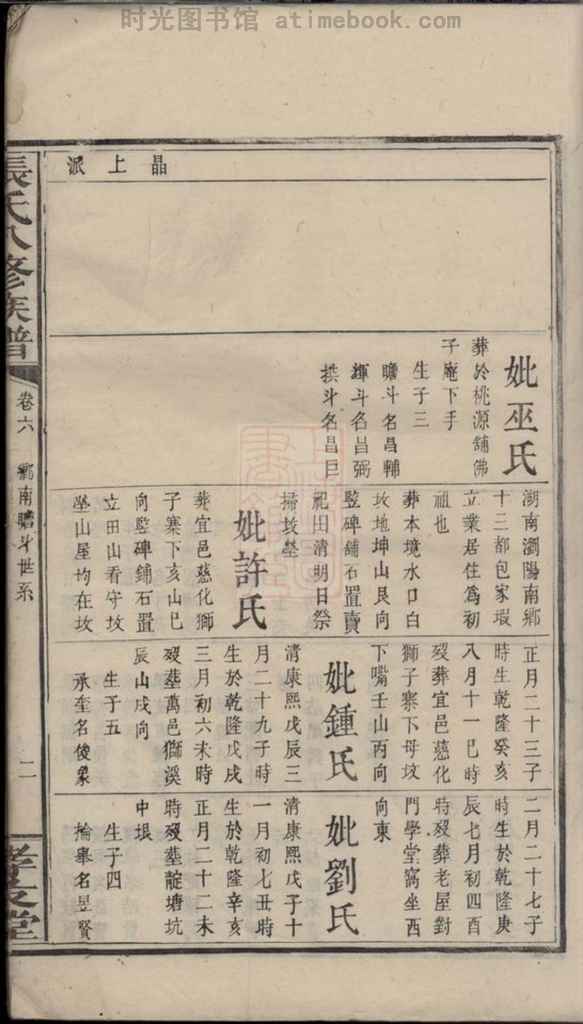 时光图书馆 atimebook.com
晶上派
妣巫氏
葬於桃源舖佛
子庵下手
生子三
瞻斗名昌輔
輝斗名昌弼
拱斗名昌巨
湖南瀏陽南鄉
十三都包家瑕
立業居住為初
祖也
葬本境水口白
坟地坤山艮向
竪碑舖石置賣
祀田清明日祭
掃坟塋
妣許氏
葬宜邑慈化獅
子寨下亥山巳
向竪碑鋪石置
立田山看守坟
坐山屋均在坟
正月二十三子
時生乾隆癸亥
八月十一巳時
歿葬宜邑慈化
獅子寨下母坟
下嘴壬山丙向
妣鍾氏
清康熙戊辰三
月二十九子時
生於乾隆戊戌
三月初六未時
歿墓萬邑獅溪
辰山戌向
生于五
承奎名俊象
二月二十七子
時生於乾隆庚
辰七月初四酉
時歿葬老屋對
門學堂窩坐西
向東
妣劉氏
清康熙戊子十
一月初七丑時
生於乾隆辛亥
正月二十二未
時歿墓靛塘坑
中垠
生子四
掄舉名昱賢
張氏八修族譜
卷六
鄉南瞻斗世系
二
孝友堂